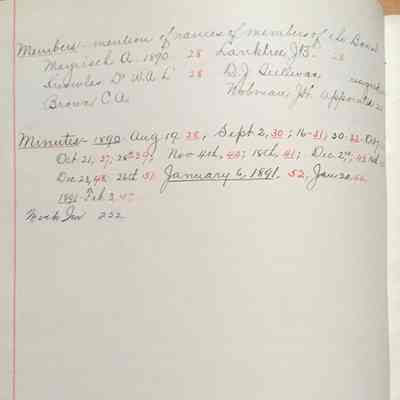 Members - mention of names of members of the Board
Mayrisch A. 1890. 28 Lanktree, J.B. 28
Knowles Dr W.A.L. 28 D.J. Sullivan
Brown C.A. Wolman, J.H. appointed
Minutes - 1890 - Aug 19 28, Sept 2, 30; 16-31; 30-32 Oct
Oct 21, 37; 28th 39; Nov 4th, 40; 18th, 41; Dec 2nd, 43
Dec 23, 48 26th 51 January 6, 1891. 52, Jan 20
1891 - Feb 3,
222